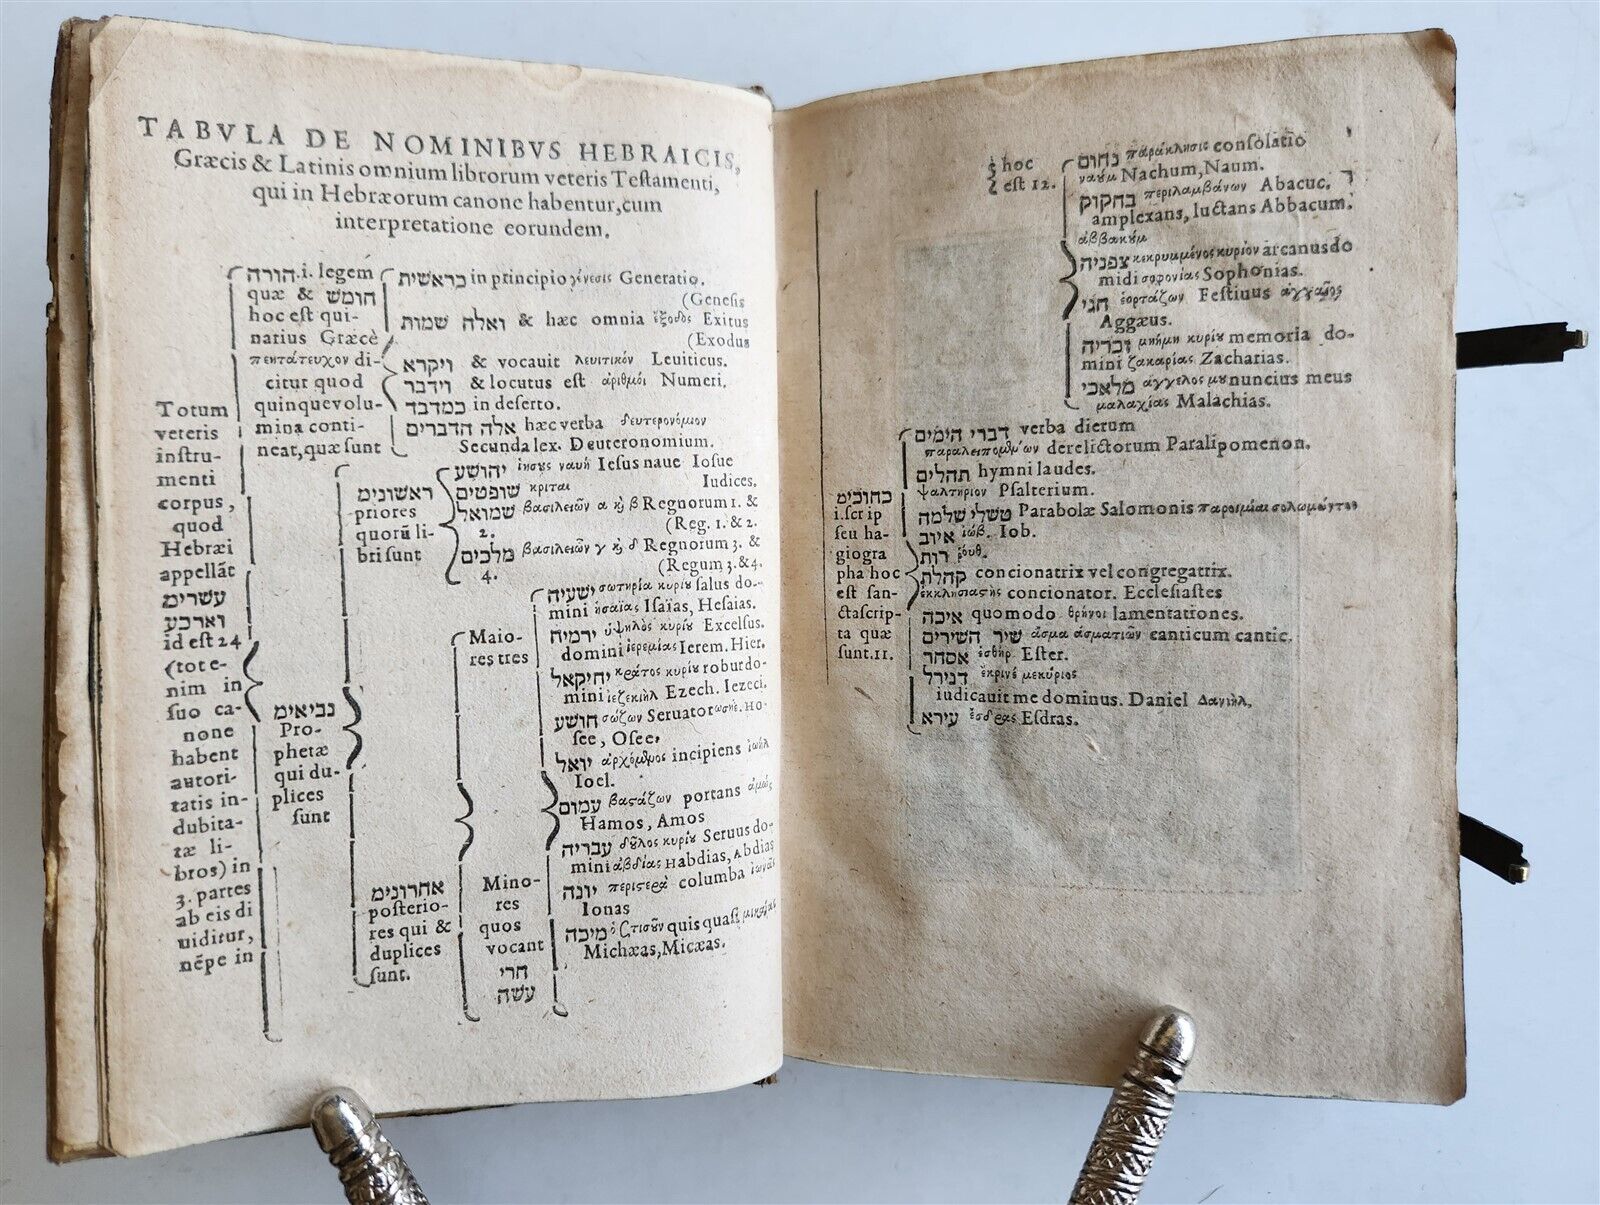 TABVLA DE NOMINIBVS HEBRAICIS,
Græcis & Latinis omnium librorum veteris Testamenti,
qui in Hebræorum canone habentur, cum
interpretatione eorundem.
Totum
veteris
instru-
menti
corpus,
quod
Hebræi
appellãt
עשרים
וארבע
id est 24
(tot e-
nim in
suo ca-
none
habent
autori-
tatis in-
dubita-
tæ li-
bros) in
3. partes
ab eis di
uiditur,
nẽpe in
תורה .i. legem
quæ & חומש
hoc est qui-
narius Græcè
πεντάτευχον di-
citur quod
quinque volu-
mina conti-
neat, quæ sunt
בראשית in principio γένεσις Generatio.
(Genesis
ואלה שמות & hæc omnia ἔξοδος Exitus
(Exodus
ויקרא & vocauit λευιτικόν Leuiticus.
וידבר & locutus est ἀριθμοί Numeri.
במדבר in deserto.
אלה הדברים hæc verba δευτερονόμιον
Secunda lex. Deuteronomium.
נביאים
Pro-
phetæ
qui du-
plices
sunt
ראשונים
priores
quorũ li-
bri sunt
יהושע ἰησους ναυὴ Iesus naue Iosue
שופטים κριται Iudices.
שמואל βασιλειῶν α κỳ β Regnorum 1. &
2. (Reg. 1. & 2.
מלכים βασιλειῶν γ κỳ δ Regnorum 3. &
4. (Regum 3. & 4.
אחרונים
posterio-
res qui &
duplices
sunt.
Maio-
res tres
ישעיה σωτηρία κυρίου salus do-
mini ἡσαΐας Isaïas, Hesaias.
ירמיה ὑψηλὸς κυρίου Excelsus.
domini ἱερεμίας Ierem. Hier.
יחזקאל κράτος κυρίου robur do-
mini ἰεζεκιὴλ Ezech. Iezeci.
Mino-
res
quos
vocant
תרי
עשר
הושע σώζων Seruator ωσηέ. Ho-
see, Osee.
יואל ἀρχόμενος incipiens ἰωὴλ
Ioel.
עמוס βαστάζων portans ἀμώς
Hamos, Amos
עבדיה δοῦλος κυρίου Seruus do-
mini ἀβδίας Habdias, Abdias
יונה περιστερὰ columba ἰωνᾶς
Ionas
מיכה quis quasi μιχαίας
Michæas, Micæas.
hoc
est 12.
נחום παράκλησις consolatio
ναοὺμ Nachum, Naum.
חבקוק περιλαμβάνων Abacuc.
amplexans, luctans Abbacum.
ἀββακούμ
צפניה κεκρυμμένος κυρίου arcanus do
midi σοφονίας Sophonias.
חגי ἑορτάζων Festiuus ἀγγαῖος
Aggæus.
זכריה μνήμη κυρίου memoria do-
mini ζακαρίας Zacharias.
מלאכי ἄγγελος μου nuncius meus
μαλαχίας Malachias.
כתובים
i. scrip
seu ha-
giogra
pha hoc
est san-
cta scrip-
ta quæ
sunt. 11.
דברי הימים verba dierum
παραλειπομένων derelictorum Paralipomenon.
תהלים hymni laudes.
ψαλτήριον Psalterium.
משלי שלמה Parabolæ Salomonis παροιμίαι σολωμώντος
איוב ἰώβ. Iob.
רות ῥουθ.
קהלת concionatrix vel congregatrix.
ἐκκλησιαστὴς concionator. Ecclesiastes
איכה quomodo θρῆνοι lamentationes.
שיר השירים ἄσμα ἀσματιῶν canticum cantic.
אסתר ἐσθὴρ Ester.
דניאל ἔκρινέ με κύριος
iudicauit me dominus. Daniel Δανιὴλ,
עזרא ἔσδρας Esdras.